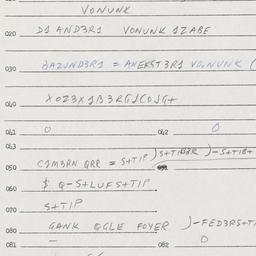 VONUNK
020 D1 AND3R1 VONUNK 1ZABE
030 BAZUND3R1 = ANEKST3R1 VONUNK (
040 XOZ3X1B3RGJCOJG+
041 0 042 0
043
050 C1M3RN QRR = S+T1P )S+T1B3R )-S+T1B+
060 $ Q-S+LUFS+T1P
070 S+T1P
080 GANK QGLE FOYER )-FED3RS+T1
081 — 082 0